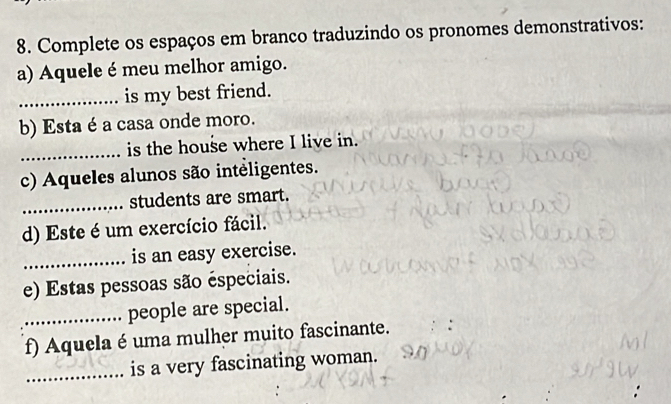 8. Complete os espaços em branco traduzindo os pronomes demonstrativos:
a) Aquele é meu melhor amigo.
.................. is my best friend.
b) Esta é a casa onde moro.
.................. is the house where I live in.
c) Aqueles alunos são inteligentes.
.................. students are smart.
d) Este é um exercício fácil.
.................. is an easy exercise.
e) Estas pessoas são especiais.
.................. people are special.
f) Aquela é uma mulher muito fascinante.
.................. is a very fascinating woman.